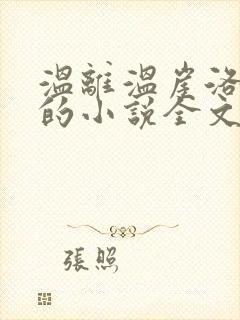 温離温崖洛
的小説全文
張照